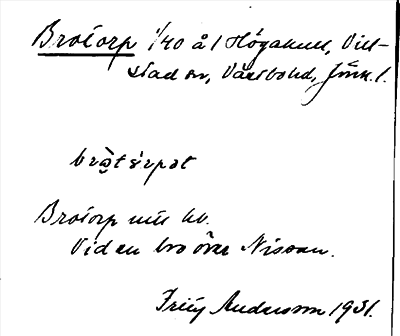 Brotorp 1/40 å l Högakull, Vill-
stad sn, Västbo hd, Jönk. l.
bròtȧrpȧt
Brotorp utü kv.
Vid en bro över Nissan.
Andersson 1931.